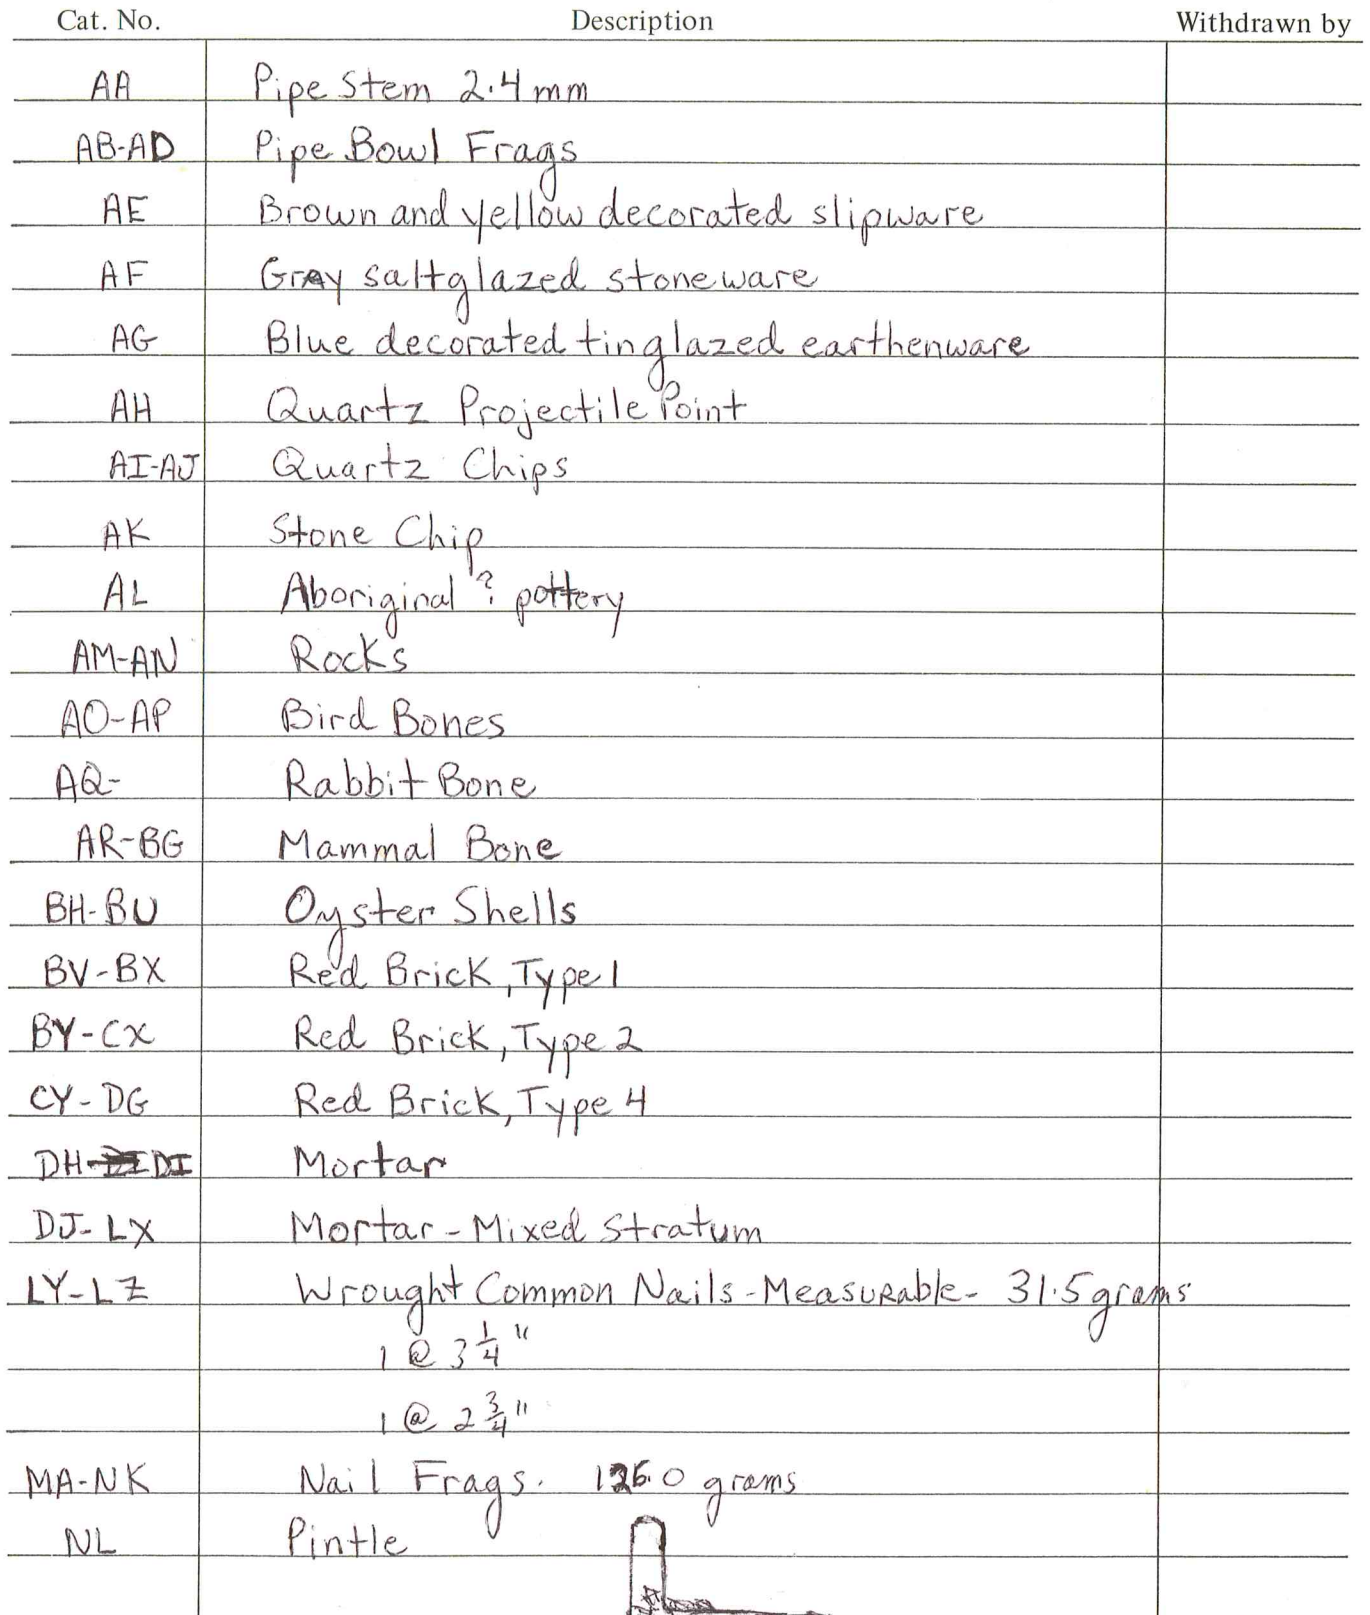 Cat. No. Description Withdrawn by
AA Pipe Stem 2.4mm
AB-AD Pipe Bowl Frags
AE Brown and yellow decorated slipware
AF Gray saltglazed stoneware
AG Blue decorated tinglazed earthenware
AH Quartz Projectile Point
AI-AJ Quartz Chips
AK Stone Chip
AL Aboriginal ? pottery
AM-AN Rocks
AO-AP Bird Bones
AQ- Rabbit Bone
AR-BG Mammal Bone
BH-BU Oyster Shells
BV-BX Red Brick, Type 1
BY-CX Red Brick, Type 2
CY-DG Red Brick, Type 4
DH-DI Mortar
DJ-LX Mortar-Mixed Stratum
LY-LZ Wrought Common Nails-Measurable- 31.5 grams
1 @ 3 1/4"
1 @ 2 3/4"
MA-NK Nail Frags. 126.0 grams
NL Pintle